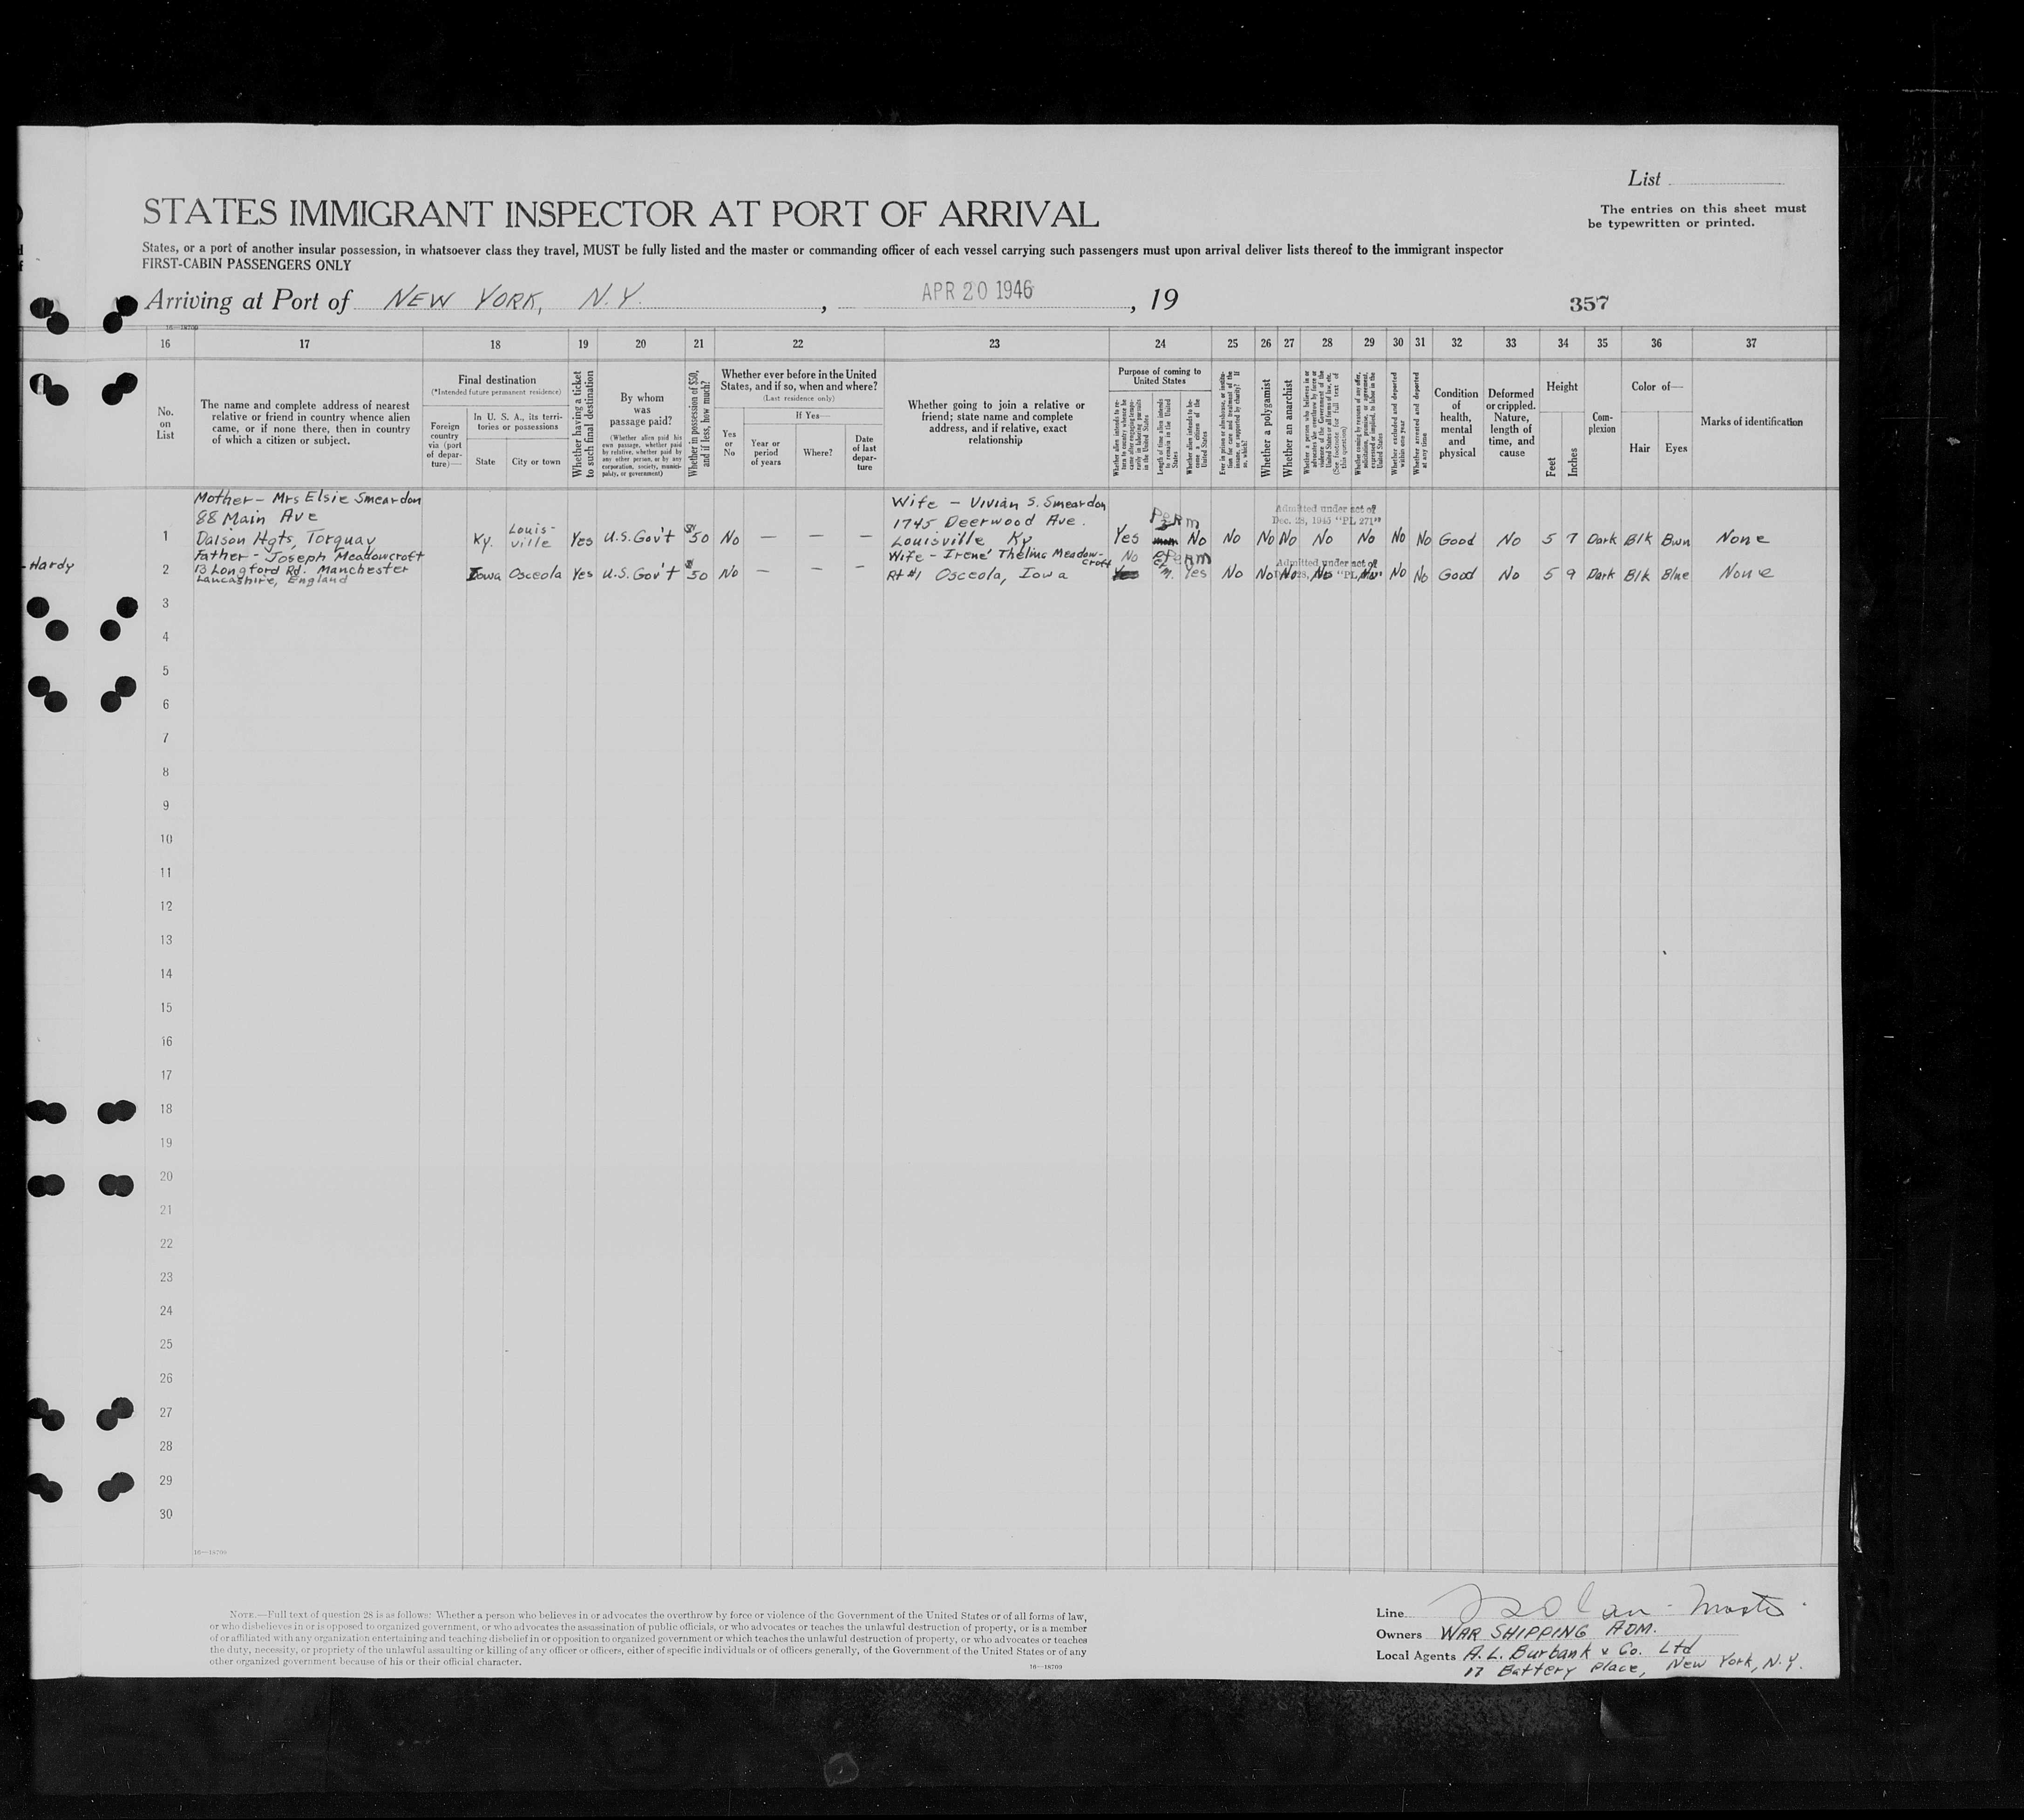 List
The entries on this sheet must
be typewritten or printed.
STATES IMMIGRANT INSPECTOR AT PORT OF ARRIVAL
States, or a port of another insular possession, in whatsoever class they travel, MUST be fully listed and the master or commanding officer of each vessel carrying such passengers must upon arrival deliver lists thereof to the immigrant inspector
FIRST-CABIN PASSENGERS ONLY
Arriving at Port of NEW YORK, N.Y. , APR 20 1946 , 19
357
16—18709
16 17 18 19 20 21 22 23 24 25 26 27 28 29 30 31 32 33 34 35 36 37
No.
on
List
The name and complete address of nearest
relative or friend in country whence alien
came, or if none there, then in country
of which a citizen or subject.
Final destination
(*Intended future permanent residence)
Foreign
country
via (port
of depar-
ture)—
In U. S. A., its terri-
tories or possessions
State
City or town
Whether having a ticket
to such final destination
By whom
was
passage paid?
(Whether alien paid his
own passage, whether paid
by relative, whether paid by
any other person, or by any
corporation, society, munici-
pality, or government)
Whether in possession of $50,
and if less, how much?
Whether ever before in the United
States, and if so, when and where?
(Last residence only)
Yes
or
No
If Yes—
Year or
period
of years
Where?
Date
of last
depar-
ture
Whether going to join a relative or
friend; state name and complete
address, and if relative, exact
relationship
Purpose of coming to
United States
Whether alien intends to re-
turn to country whence he
came after engaging tempo-
rarily in laboring pursuits
in the United States
Length of time alien intends
to remain in the United
States
Whether alien intends to be-
come a citizen of the
United States
Ever in prison or almshouse, or institu-
tion for care and treatment of the
insane, or supported by charity? If
so, which?
Whether a polygamist
Whether an anarchist
Whether a person who believes in or
advocates the overthrow by force or
violence of the Government of the
United States or all forms of law, etc.
(See footnote for full text of
this question)
Whether coming by reasons of any offer,
solicitation, promise, or agreement,
expressed or implied, to labor in the
United States
Whether excluded and deported
within one year
Whether arrested and deported
at any time
Condition
of
health,
mental
and
physical
Deformed
or crippled.
Nature,
length of
time, and
cause
Height
Feet
Inches
Com-
plexion
Color of—
Hair
Eyes
Marks of identification
Mother - Mrs Elsie Smeardon
88 Main Ave
Dalson Hgts, Torquay
1 Ky. Louis-
ville Yes U.S. Gov't $50 No — — —
Wife - Vivian S. Smeardon
1745 Deerwood Ave.
Louisville Ky
Yes Perm No No No No No No No No Good No 5 7 Dark Blk Bwn None
Admitted under act of
Dec. 28, 1945 "PL 271"
-Hardy
Father - Joseph Meadowcroft
13 Longford Rd. Manchester
Lancashire, England
2 Iowa Osceola Yes U.S. Gov't $50 No — — —
Wife - Irene Thelma Meadow-
croft
Rt #1 Osceola, Iowa
No Perm Yes No No No No No No No Good No 5 9 Dark Blk Blue None
Admitted under act of
3
4
5
6
7
8
9
10
11
12
13
14
15
16
17
18
19
20
21
22
23
24
25
26
27
28
29
30
16—18709
NOTE.—Full text of question 28 is as follows: Whether a person who believes in or advocates the overthrow by force or violence of the Government of the United States or of all forms of law,
or who disbelieves in or is opposed to organized government, or who advocates the assassination of public officials, or who advocates or teaches the unlawful destruction of property, or is a member
of or affiliated with any organization entertaining and teaching disbelief in or opposition to organized government or which teaches the unlawful destruction of property, or who advocates or teaches
the duty, necessity, or propriety of the unlawful assaulting or killing of any officer or officers, either of specific individuals or of officers generally, of the Government of the United States or of any
other organized government because of his or their official character.
16—18709
Line
Owners WAR SHIPPING ADM.
Local Agents A.L. Burbank & Co. Ltd
17 Battery Place, New York, N.Y.